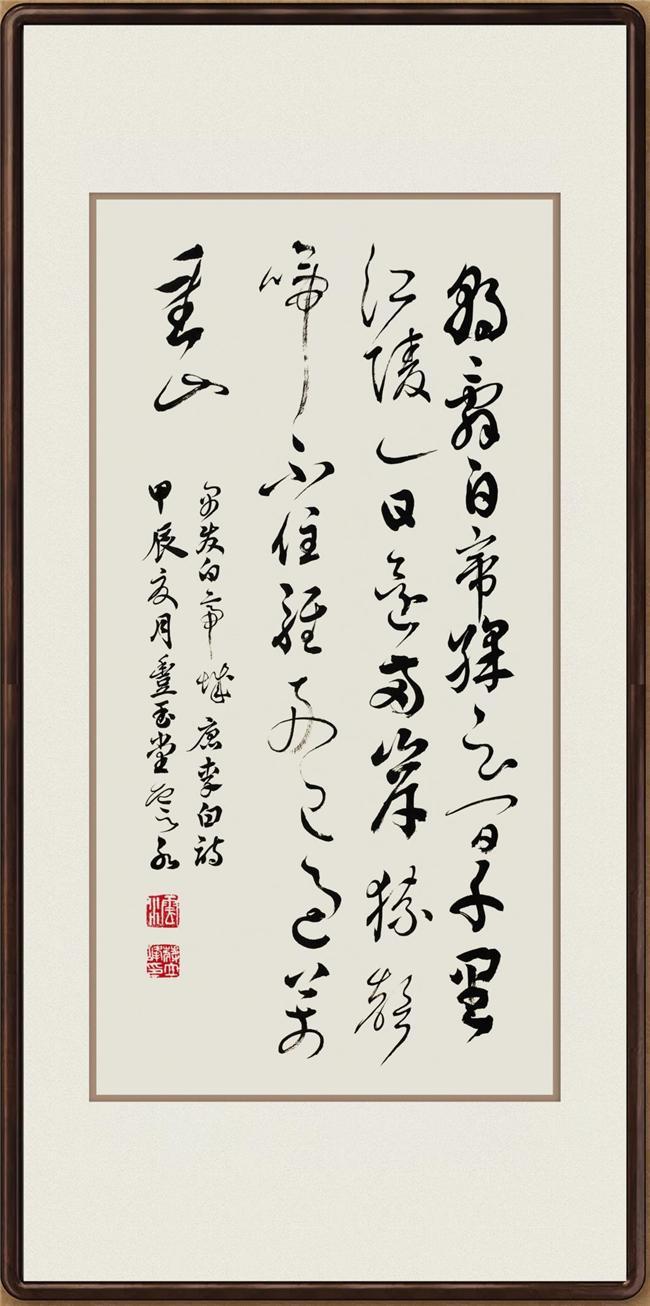 朝辭白帝綵雲間千里
江陵一日還兩岸猿聲
啼不住輕舟已過萬
重山
早发白帝城 唐李白詩
甲辰夏月豐玉堂